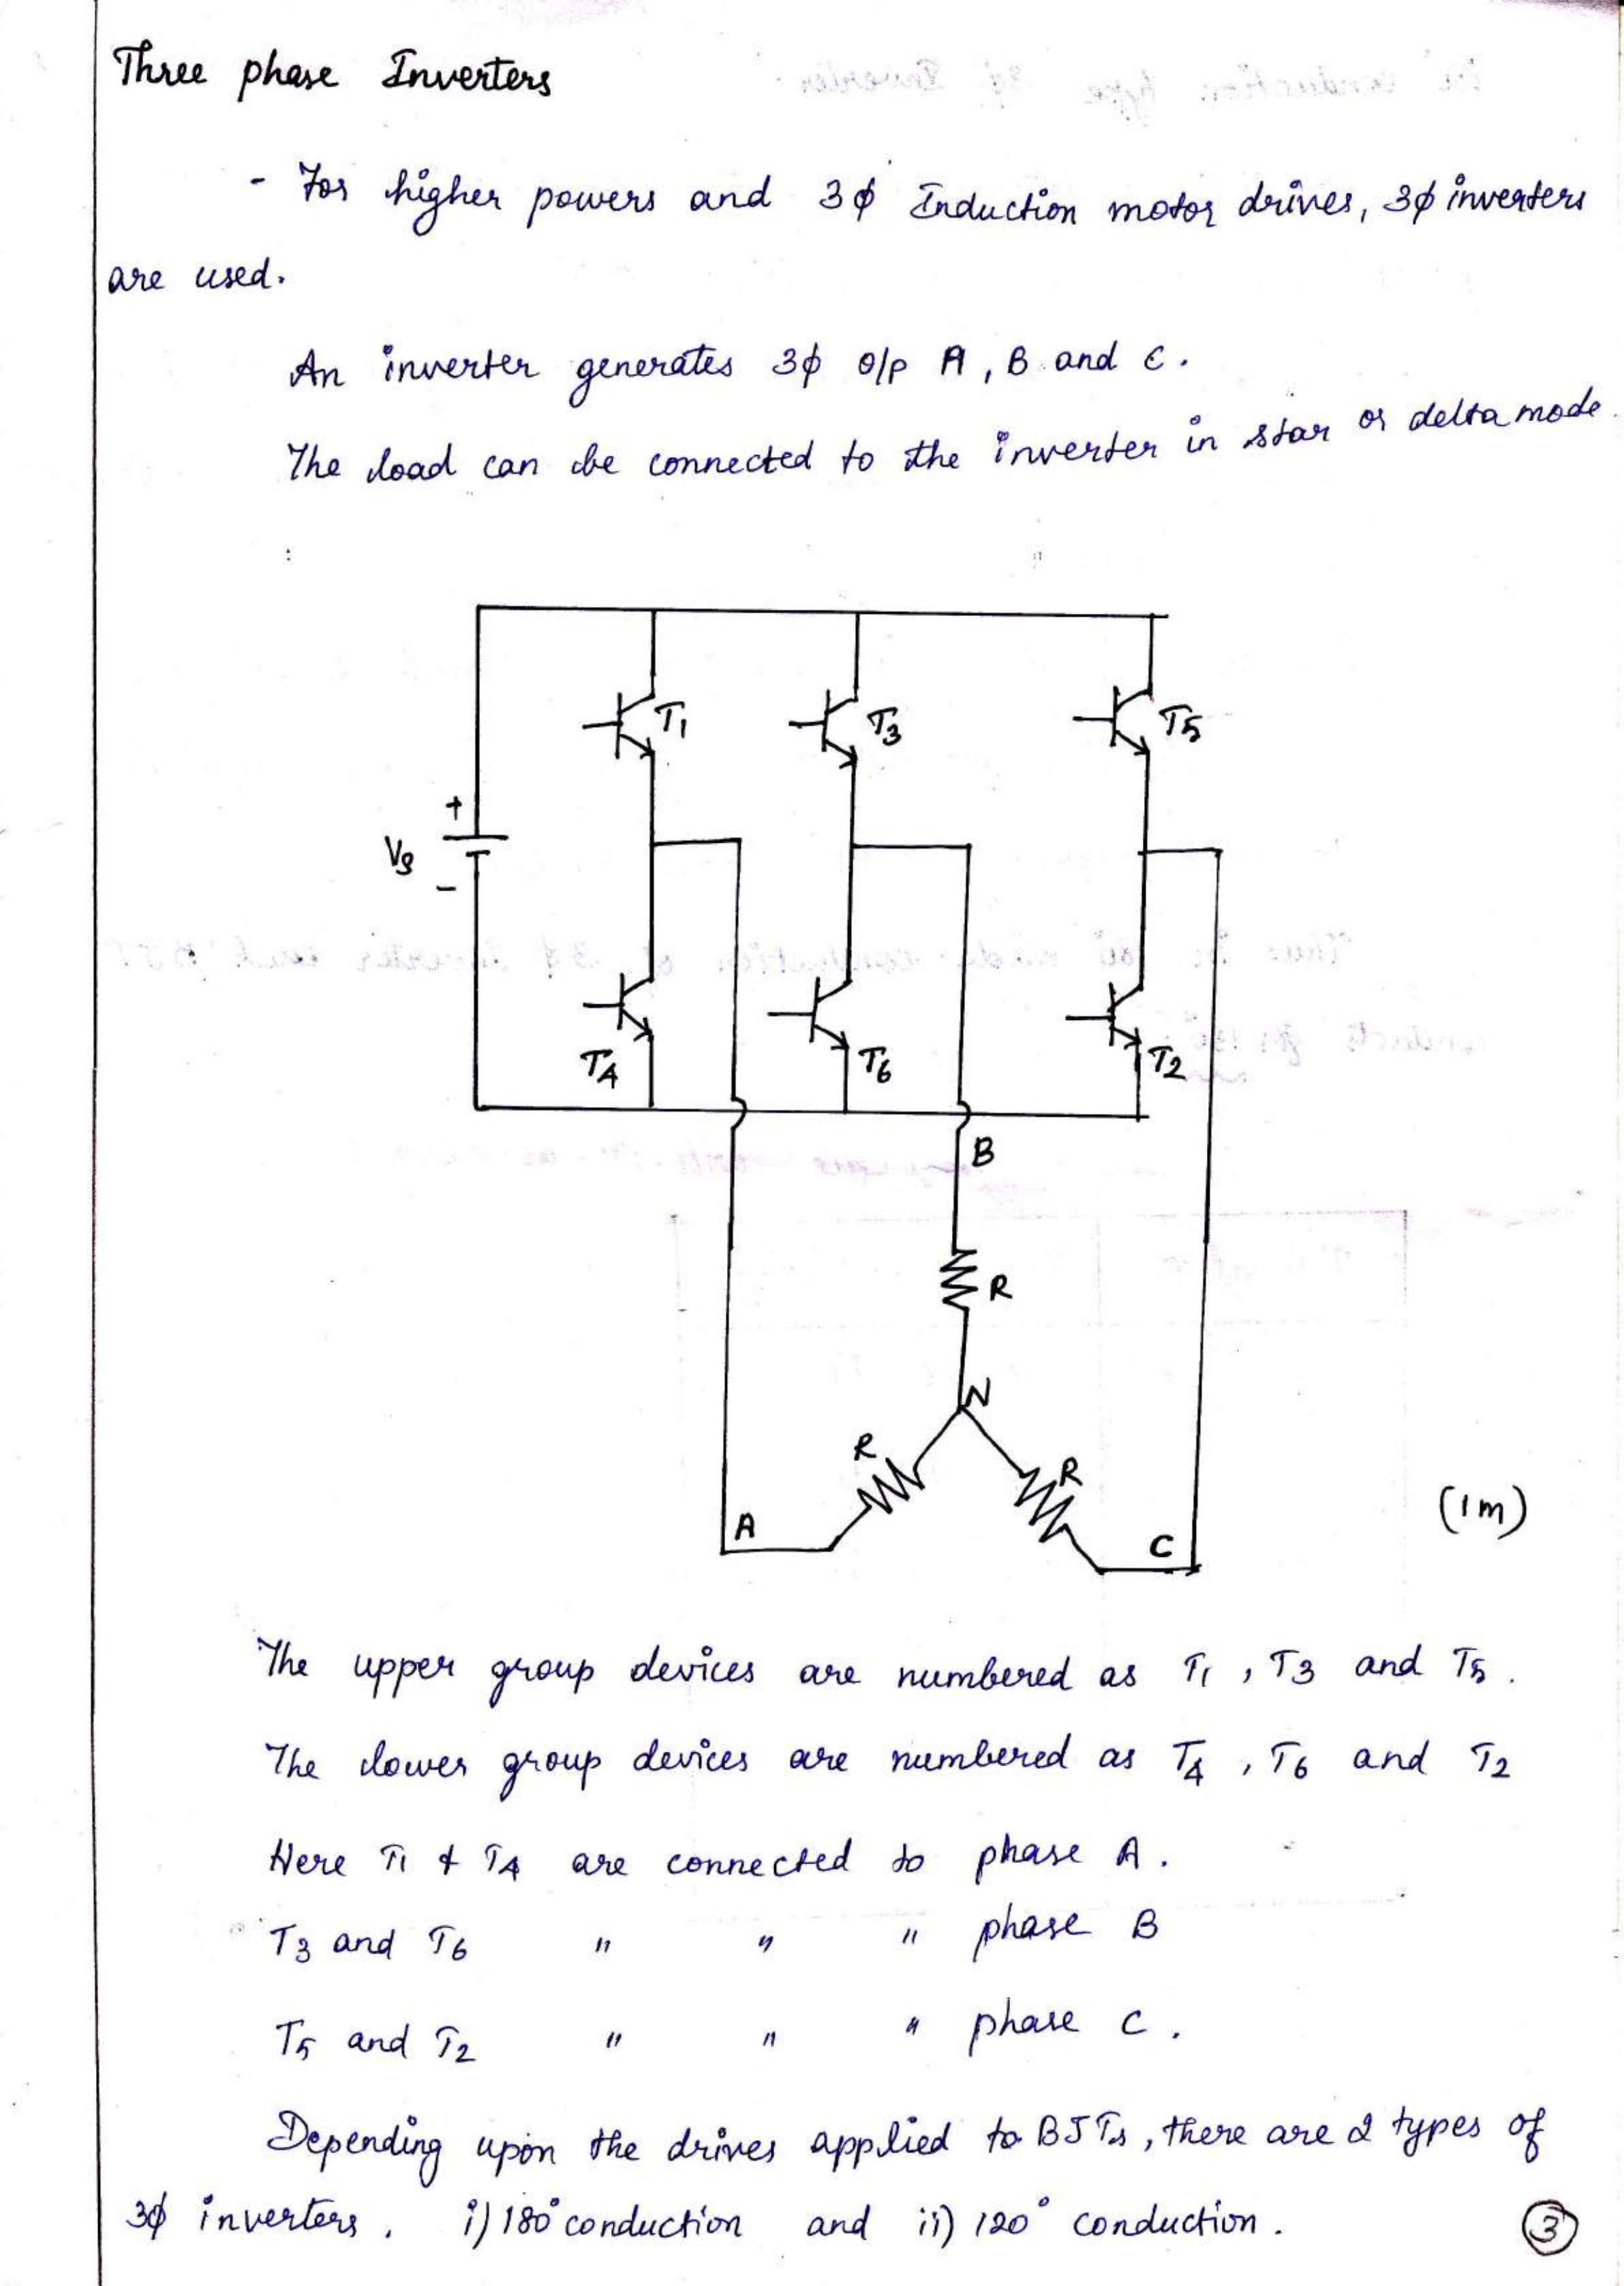 Three phase Inverters
- For higher powers and 3ϕ Induction motor drives, 3ϕ inverters
are used.
An inverter generates 3ϕ o/p A, B and C.
The load can be connected to the inverter in star or delta mode.
T1 T3 T5
+
Vs
-
T4 T6 T2
B
R
N
R R
A C
(1m)
The upper group devices are numbered as T1, T3 and T5.
The lower group devices are numbered as T4, T6 and T2
Here T1 & T4 are connected to phase A.
T3 and T6 " " " phase B
T5 and T2 " " " phase C.
Depending upon the drives applied to BJTs, there are 2 types of
3ϕ inverters. i) 180° conduction and ii) 120° conduction.
3